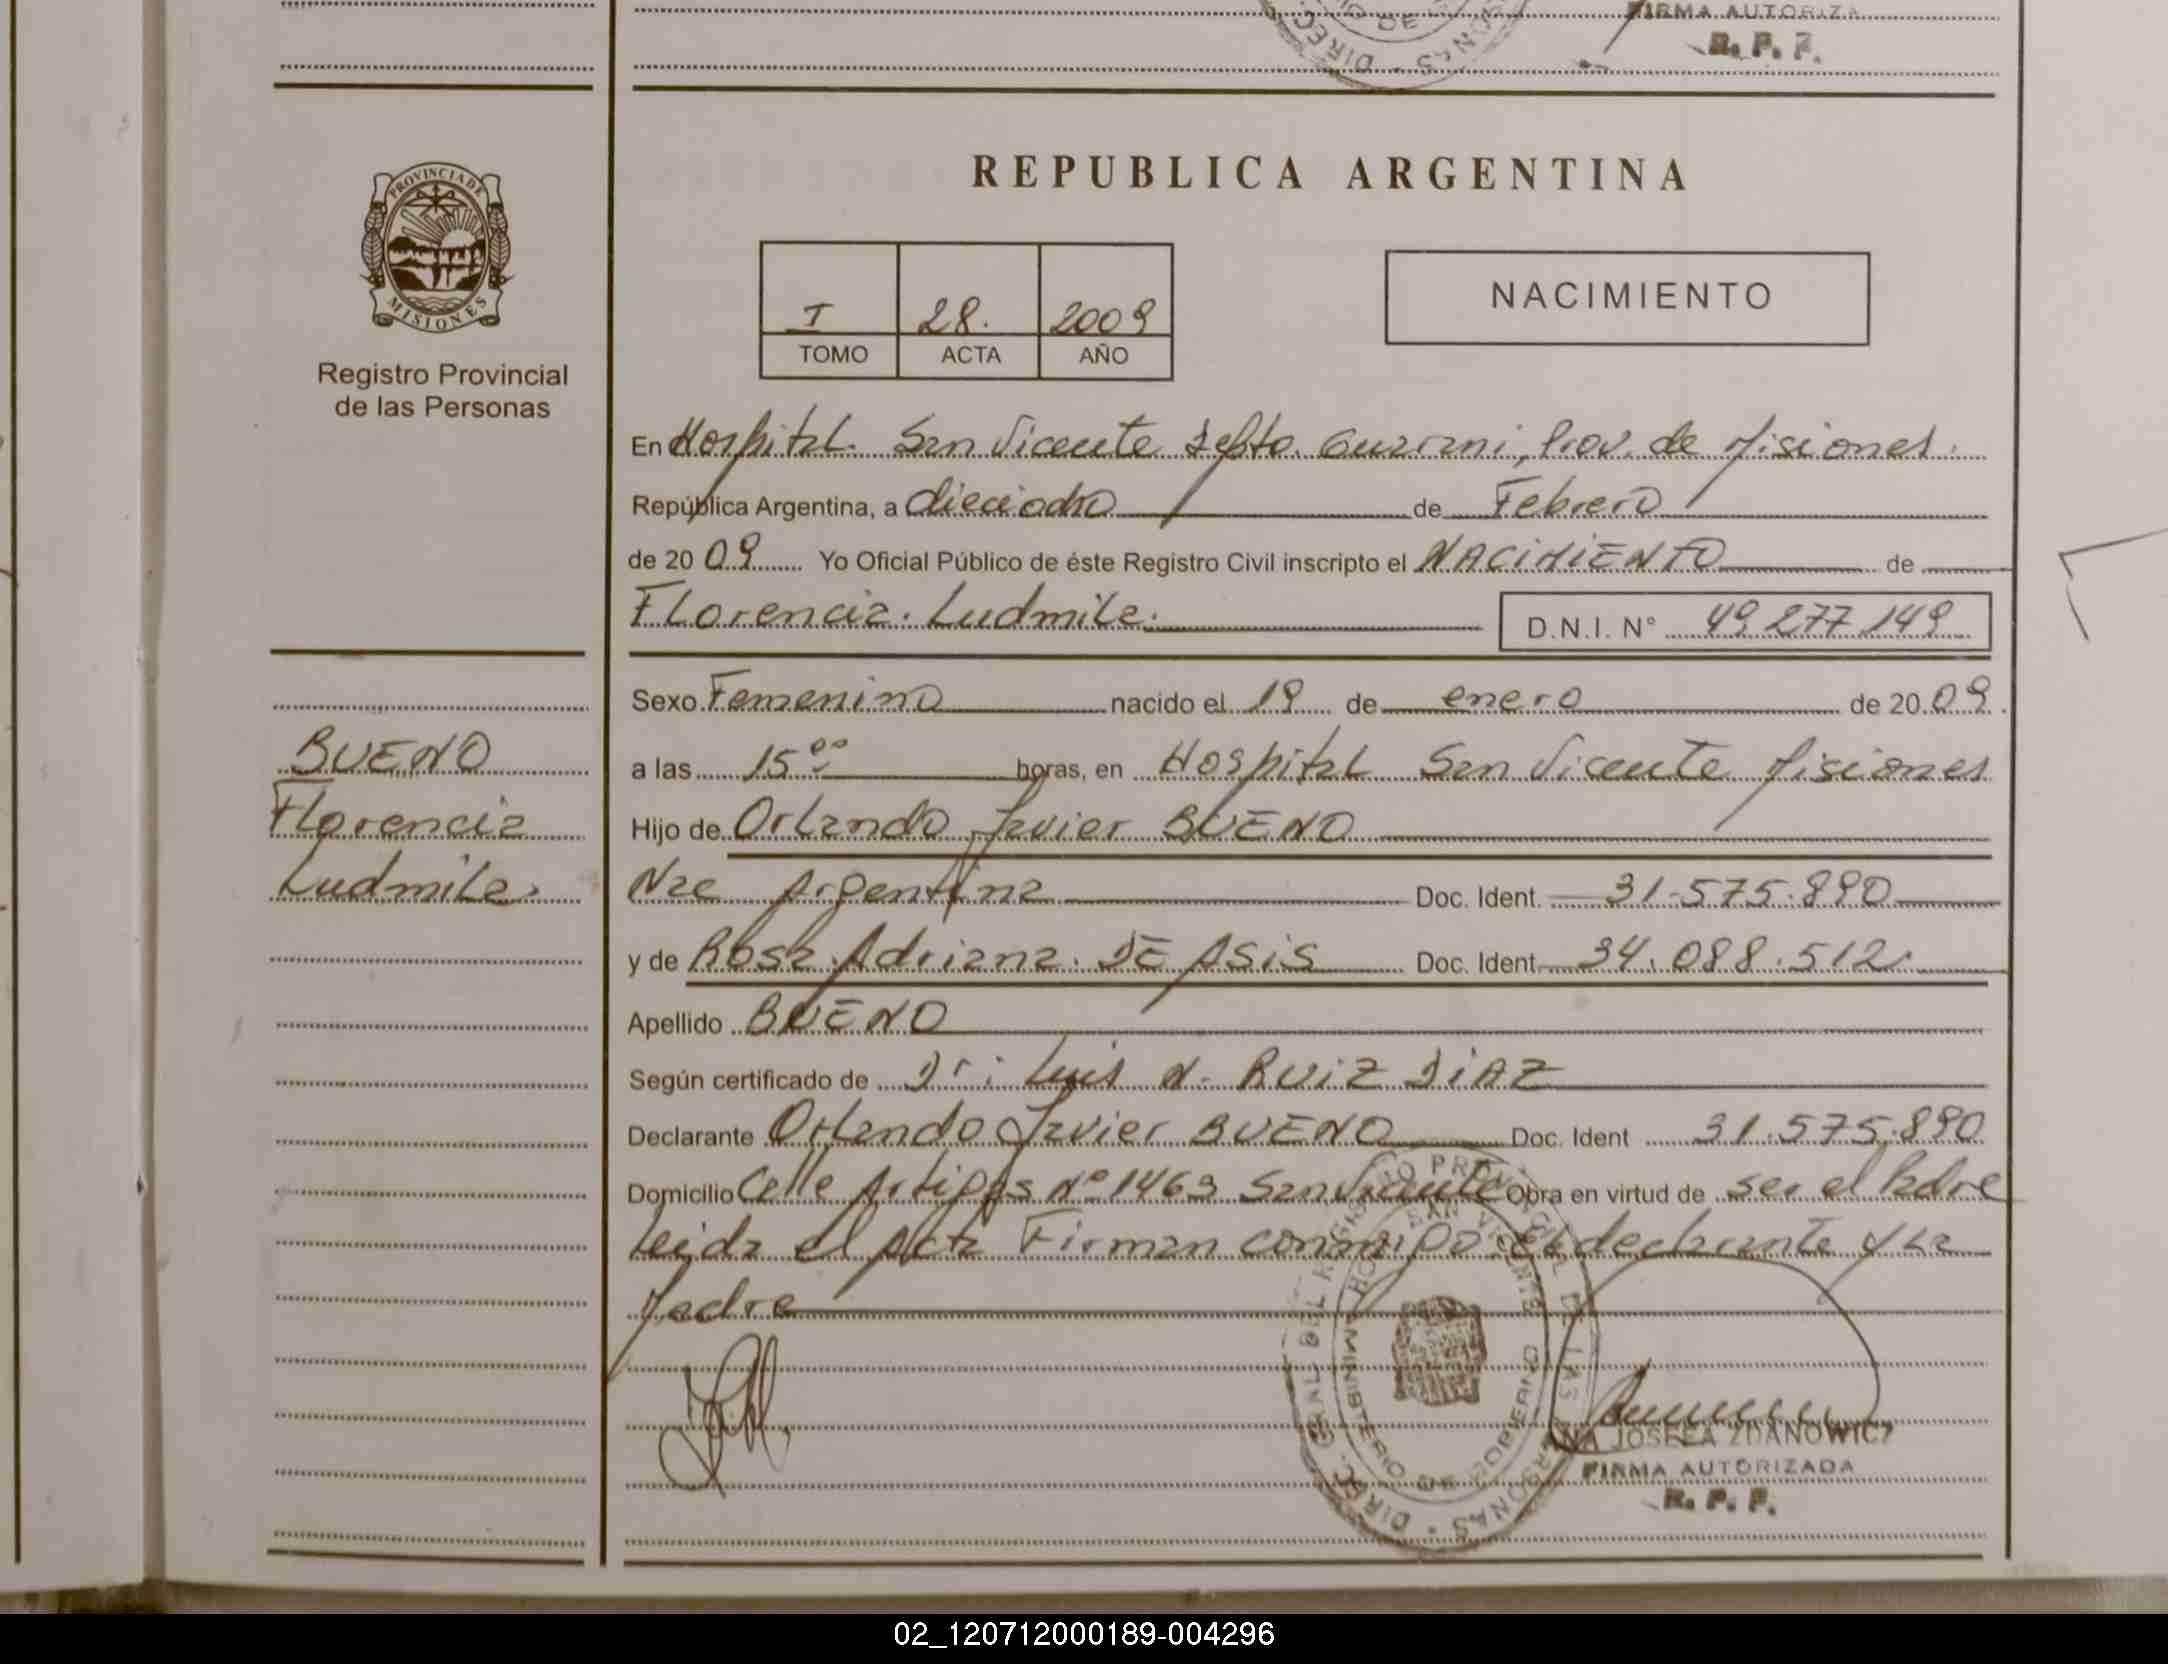 FIRMA AUTORIZA
R. P. P.
PROVINCIA DE
MISIONES
Registro Provincial
de las Personas
REPUBLICA ARGENTINA
I 28. 2009
TOMO ACTA AÑO
NACIMIENTO
En Hospital San Vicente Depto. Guarani, Prov. de Misiones.
República Argentina, a dieciocho de Febrero
de 2009 Yo Oficial Público de éste Registro Civil inscripto el NACIMIENTO de
Florencia Ludmila.
D.N.I. N° 49.277.149
Sexo Femenino nacido el 19 de enero de 2009.
a las 15⁰⁰ horas, en Hospital San Vicente Misiones
Hijo de Orlando Javier BUENO
Nac Argentina Doc. Ident. 31.575.890
y de Rosa Adriana DE ASIS Doc. Ident 34.088.512.
Apellido BUENO
Según certificado de Dr: Luis N. RUIZ DIAZ
Declarante Orlando Javier BUENO Doc. Ident 31.575.890
Domicilio Calle Artigas Nº 1463 San Vicente Obra en virtud de ser el Padre
Leida el Acta Firman conmigo El declarante y La
Madre
BUENO
Florencia
Ludmila.
JOSEFA ZDANOWICZ
FIRMA AUTORIZADA
R. P. P.
02_120712000189-004296